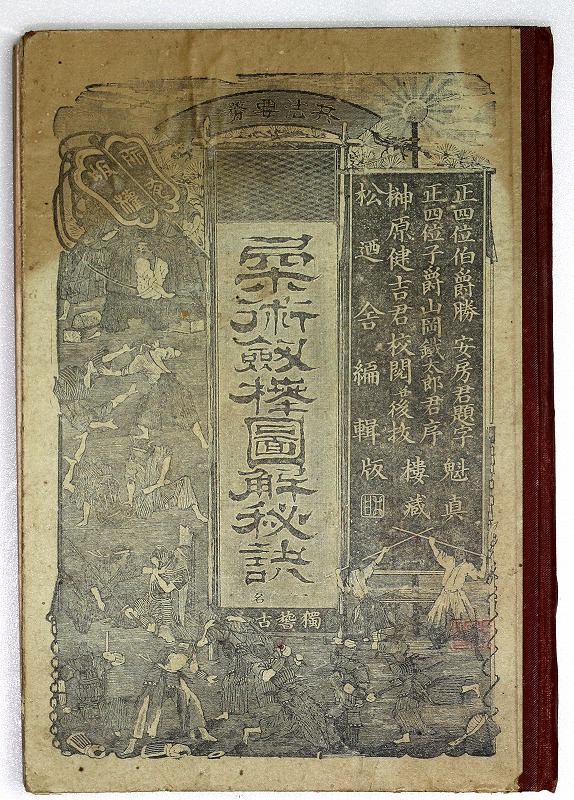 兵法要務
正四位伯爵勝 安房君題字
正四位子爵山岡鐵太郎君序
榊原健吉君校閲並後抜
松迺舎編輯
魁真樓藏版
柔術劔棒圖解秘訣
名
獨稽古